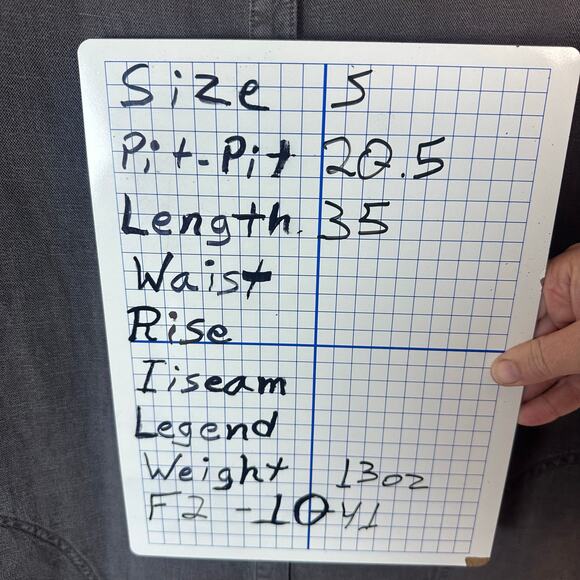 Size S
Pit-Pit 20.5
Length. 35
Waist
Rise
Iiseam
Legend
Weight 13oz
F2 -1041